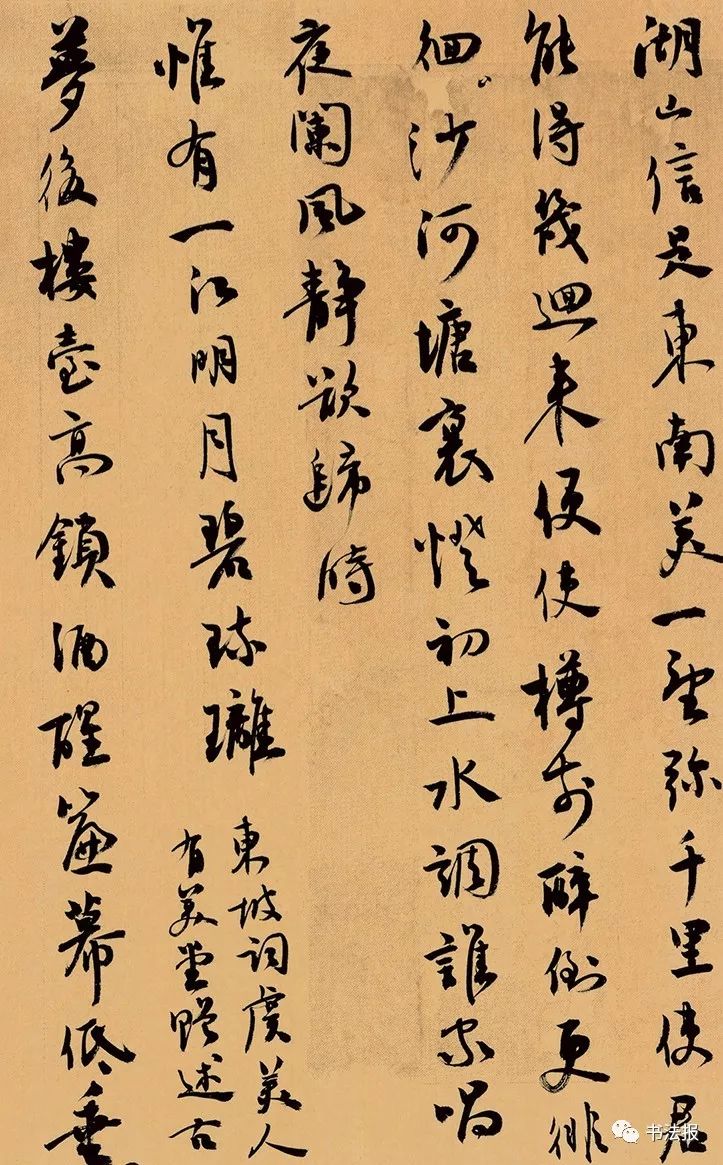 湖山信是東南美一望弥千里使君
能得幾迴来便使樽前醉倒更徘
徊沙河塘裏燈初上水調誰家唱
夜闌風静欲歸時
惟有一江明月碧琉璃
東坡詞虞美人
有美堂贈述古
夢後樓臺高鎖酒醒簾幕低垂
书法报